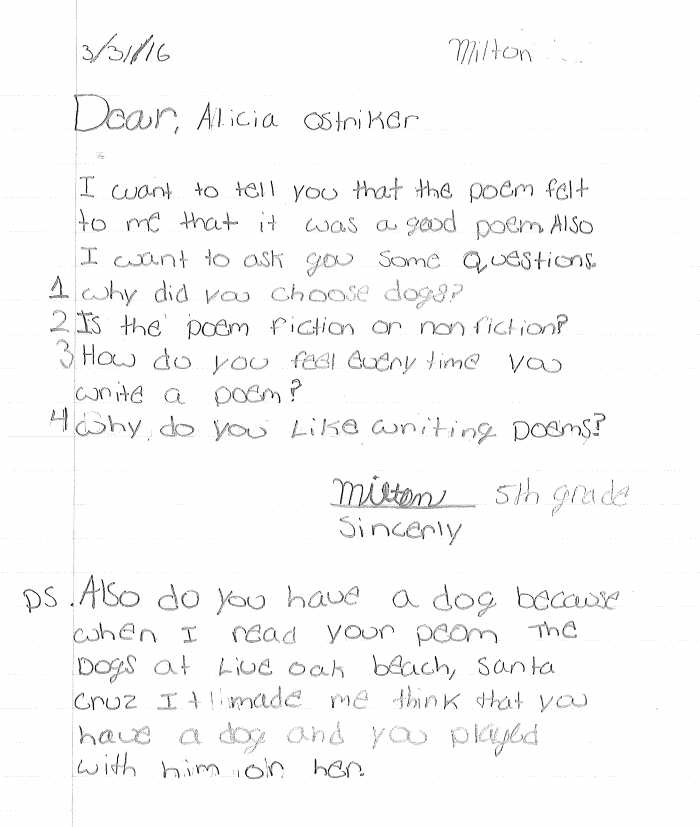 3/31/16 Milton
Dear, Alicia Ostriker
I want to tell you that the poem felt
to me that it was a good poem. Also
I want to ask you some questions.
1 why did you choose dogs?
2 Is the poem fiction or nonfiction?
3 How do you feel every time you
write a poem?
4 Why do you Like writing poems?
Milton 5th grade
Sincerly
PS. Also do you have a dog because
when I read your peom The
Dogs at Live oak beach, Santa
Cruz It made me think that you
have a dog and you played
with him or her.